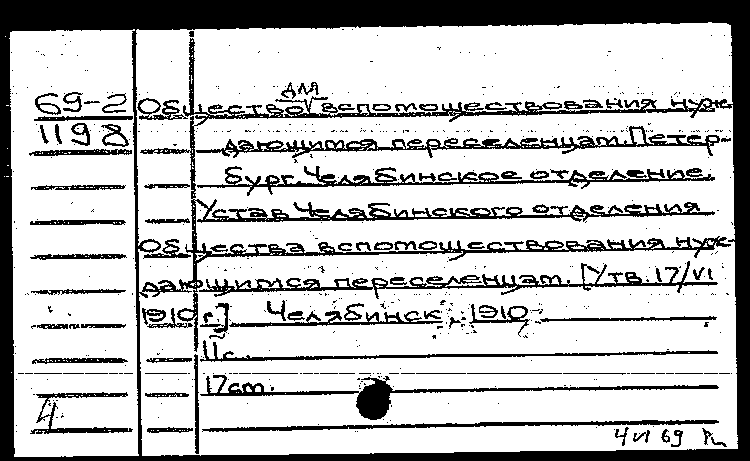 для
69-2 Общество вспомоществования нуж-
1198 дающимся переселенцам. Петер-
бург. Челябинское отделение.
Устав Челябинского отделения
Общества вспомоществования нуж-
дающимся переселенцам. [Утв. 17/VI
1910 г.] Челябинск, 1910
11 с.
17 см.
4
4 VI 69